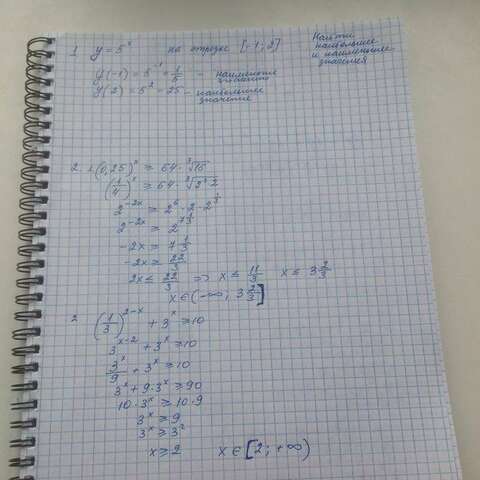 1 y = 5^x на отрезке [-1; 2] Найти наибольшее и наименьшее значения
y(-1) = 5^-1 = 1/5 – наименьшее значение
y(2) = 5^2 = 25 – наибольшее значение
2. 1. (0,25)^x ≥ 64 · ∛16
(1/4)^x ≥ 64 · ∛(2^3 · 2)
2^-2x ≥ 2^6 · 2 · 2^(1/3)
2^-2x ≥ 2^(7 1/3)
-2x ≥ 7 1/3
-2x ≥ 22/3
2x ≤ 22/3 => x ≤ 11/3 x ≤ 3 2/3
x ∈ (-∞; 3 2/3]
2. (1/3)^(2-x) + 3^x ≥ 10
3^(x-2) + 3^x ≥ 10
3^x/9 + 3^x ≥ 10
3^x + 9·3^x ≥ 90
10·3^x ≥ 10·9
3^x ≥ 9
3^x ≥ 3^2
x ≥ 2 x ∈ [2; +∞)